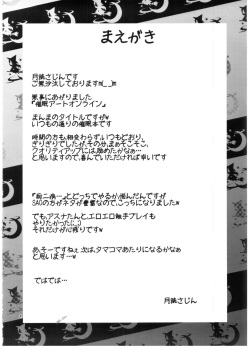 まえがき
月読さじんです
ご無沙汰しておりますm(__)m
無事にあがりました
『催眠アートオンライン』
まんまのタイトルですがw
いつもの通りの催眠本です
時間の方も、相変わらず、いつもどおり、
ぎりぎりでしたが、その分、まぁそこそこ、
クオリティアップには努めたかなぁ…
と思いますので、喜んでいただければ幸いです
SAOの方がネタが豊富なので、こっちになりました
でも、アスナたんと、エロエロ触手プレイも
やりたかった(;_;)
それだけが心残りですw
あ、そーですねぇ次は、タマコマあたりになるかなぁ
と思います…w
ではでは…
月読さじん